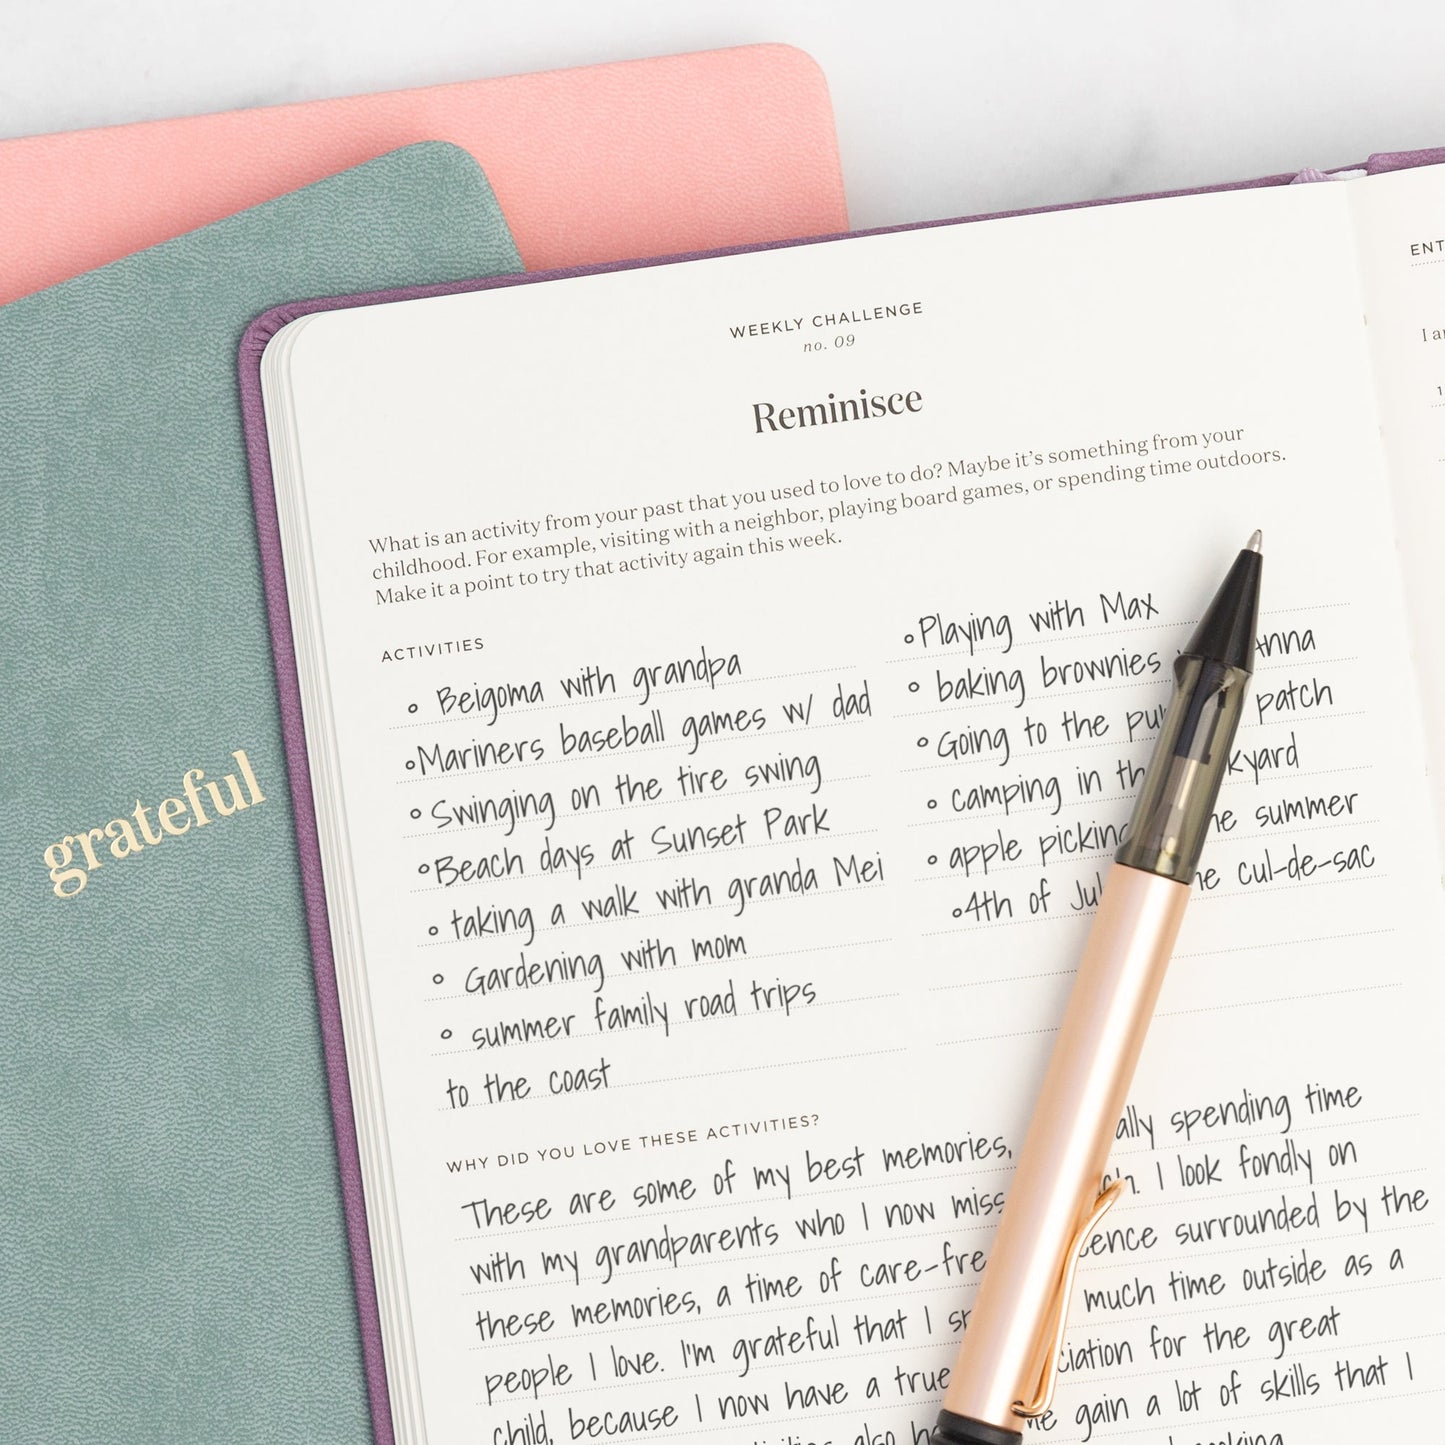 grateful
WEEKLY CHALLENGE
no. 09
Reminisce
What is an activity from your past that you used to love to do? Maybe it's something from your
childhood. For example, visiting with a neighbor, playing board games, or spending time outdoors.
Make it a point to try that activity again this week.
ACTIVITIES
• Beigoma with grandpa
• Mariners baseball games w/ dad
• Swinging on the tire swing
• Beach days at Sunset Park
• taking a walk with granda Mei
• Gardening with mom
• summer family road trips
to the coast
• Playing with Max
• baking brownies
• Going to the patch
• camping in
• apple picking summer
• 4th of cul-de-sac
WHY DID YOU LOVE THESE ACTIVITIES?
These are some of my best memories, spending time
with my grandparents who I now miss I look fondly on
these memories, a time of care-fre surrounded by the
people I love. I'm grateful that I much time outside as a
child, because I now have a true for the great
also gain a lot of skills that I
ENT
I a
1